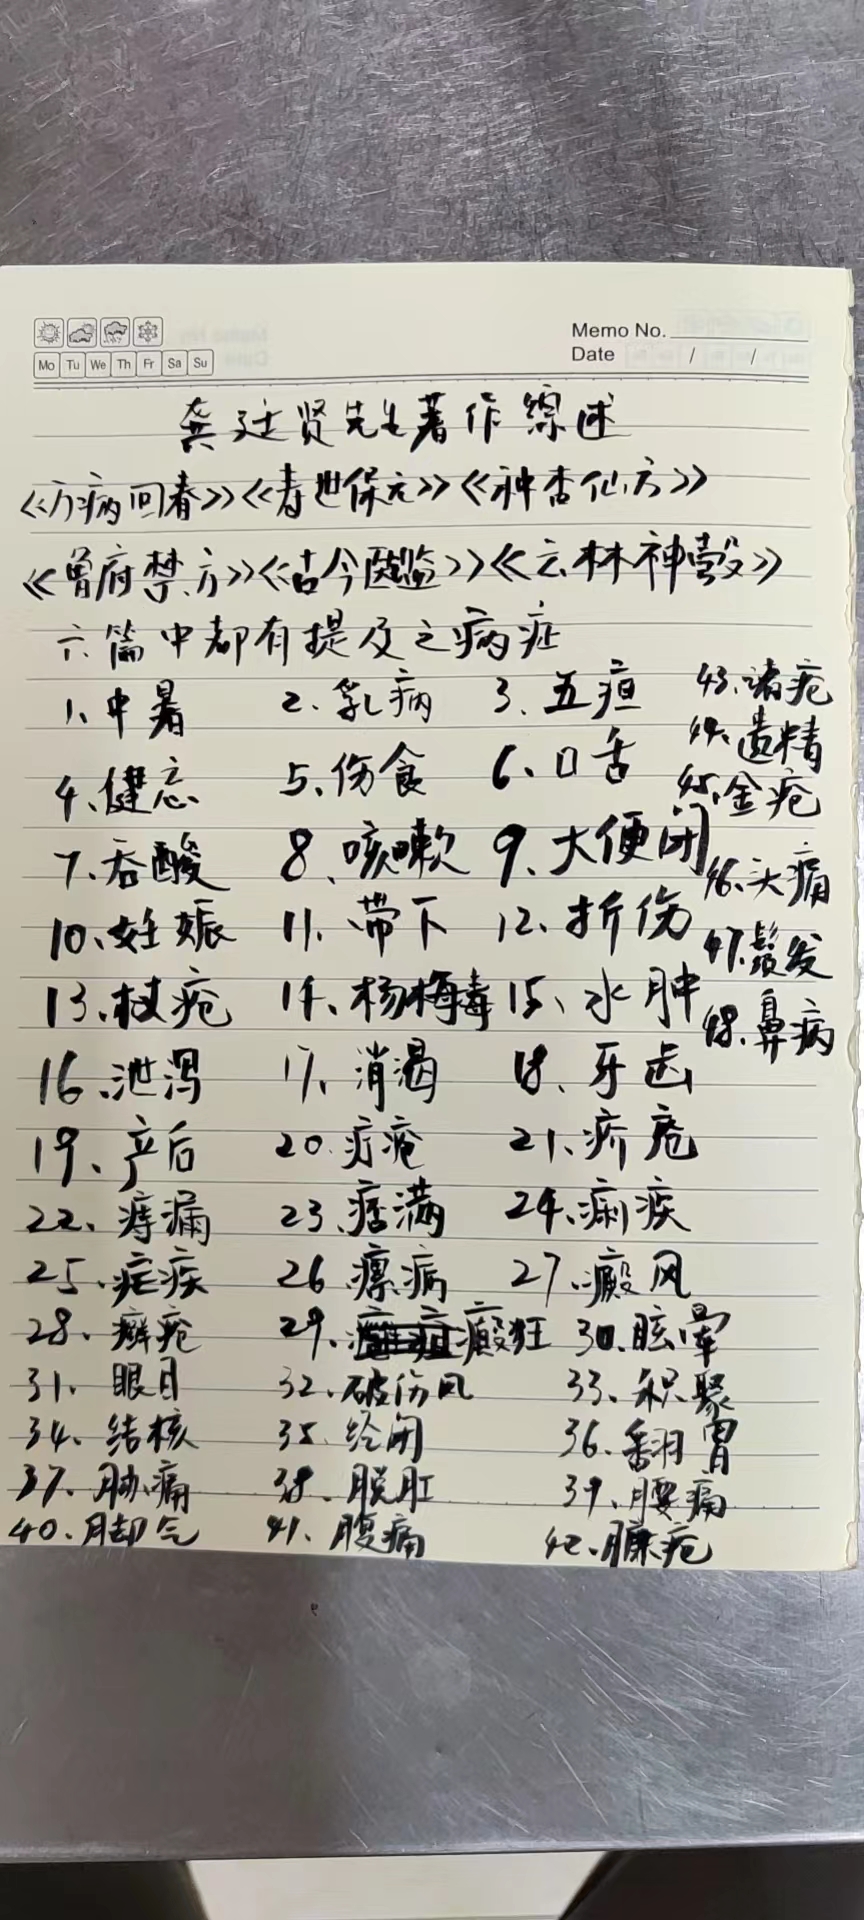 Memo No.
Mo Tu We Th Fr Sa Su
Date / /
龚廷贤先生著作综述
《万病回春》《寿世保元》《种杏仙方》
《鲁府禁方》《古今医鉴》《云林神彀》
六篇中都有提及之病症
1、中暑 2、乳病 3、五疸 43、诸疮
44、遗精
4、健忘 5、伤食 6、口舌 45、金疮
7、吞酸 8、咳嗽 9、大便闭 46、头痛
10、妊娠 11、带下 12、折伤 47、鬚发
13、杖疮 14、杨梅毒 15、水肿 48、鼻病
16、泄泻 17、消渴 18、牙齿
19、产后 20、疔疮 21、疥疮
22、痔漏 23、痞满 24、痢疾
25、疟疾 26、瘰病 27、癜风
28、癣疮 29、癫狂 30、眩晕
31、眼目 32、破伤风 33、积聚
34、结核 35、经闭 36、翻胃
37、胁痛 38、脱肛 39、腰痛
40、脚气 41、腹痛 42、臁疮